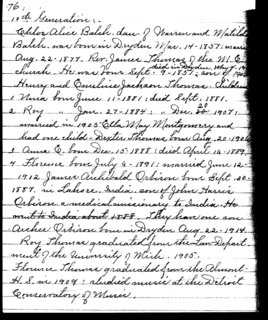 76.
10th Generation:-
Chloe Alice Balch, dau of Warren and Matilda
Balch. was born in Dryden Mar. 14-1857: married
Aug. 22-1877. Rev. James Thomas of the M. E.
died in Dryden, May 4, 19
church. He was born Sept. 9-1851: son of
Henry and Emeline Jackson Thomas. Children
1 Nina born June 11-1881 died Sept. 1881.
2 Roy " Jan. 27-1884: " Dec. 20 1907:
married in 1905 Ella May Montgomery and
had one child- Dexter Thomas born Aug. 20-1906
3 Anna E. born Dec. 15-1888: died April 16 1889.
4 Florence born July 6-1891: married June 12-
1912 James Archibald Orbison born Sept. 20-
1887. in Lahore, India, son of John Harris
Orbison a medical missionary to India. He
went to India about 1888. They have one son
Archer Orbison born in Dryden Aug. 22-1914.
Roy Thomas graduated from the Law Depart
ment of the University of Mich. 1905.
Florence Thomas graduated from the Almont
H. S. in 1909: studied music at the Detroit
Conservatory of Music.